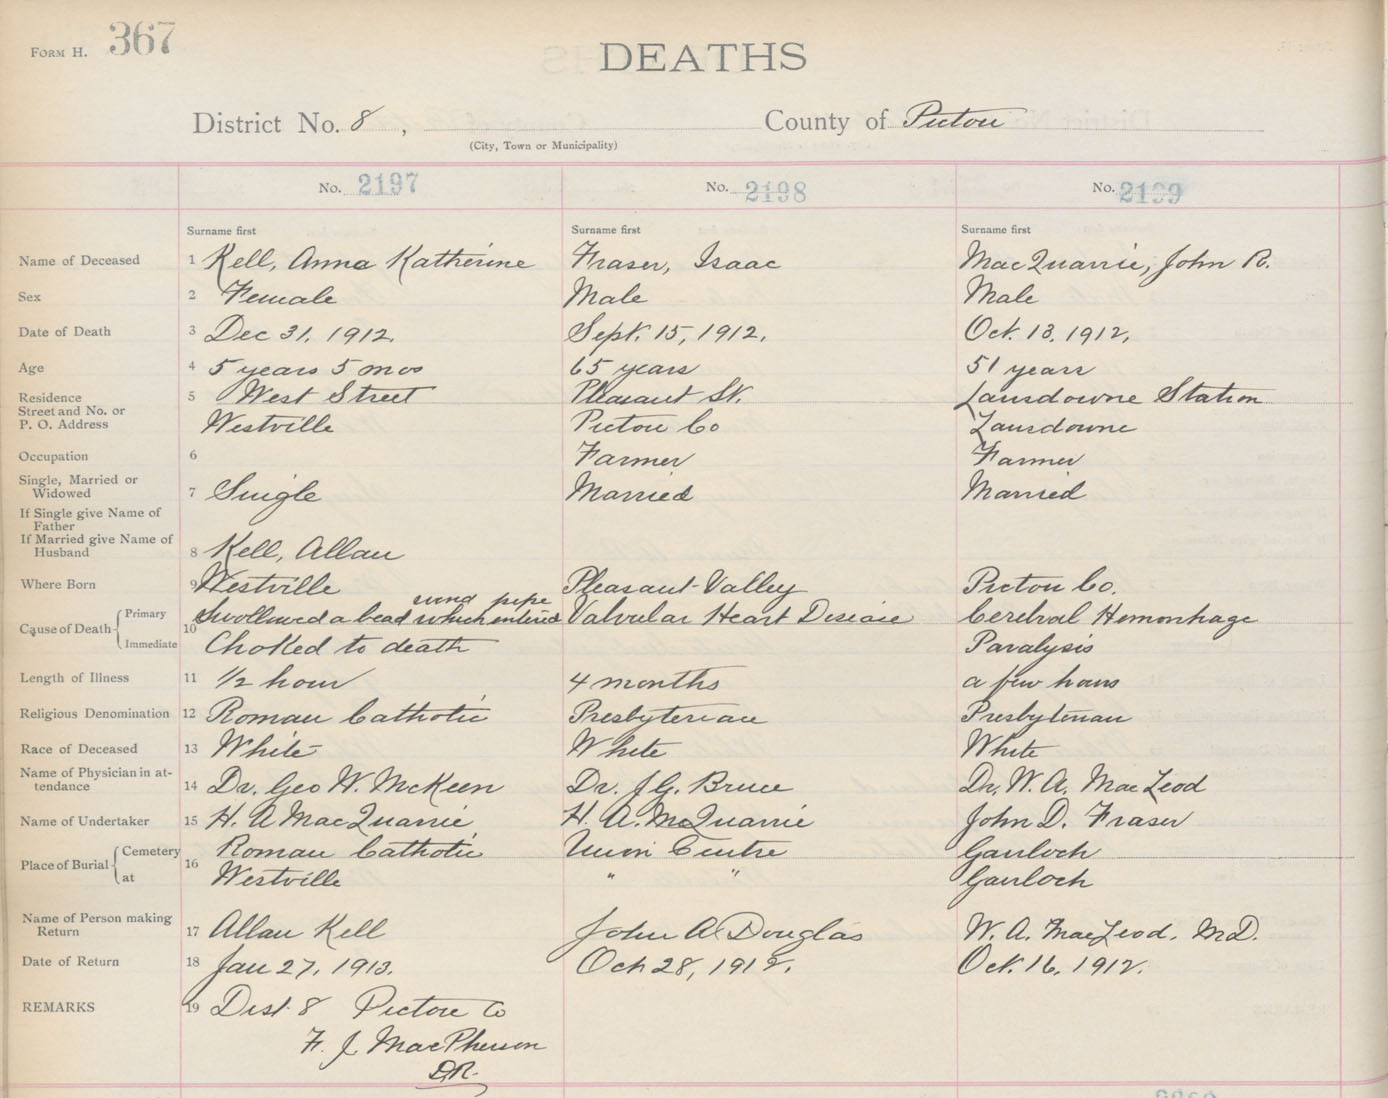 FORM H. 367
DEATHS
District No. 8, County of Pictou
(City, Town or Municipality)
No. 2197 No. 2198 No. 2199
Surname first Surname first Surname first
Name of Deceased 1 Kell, Anna Katherine Fraser, Isaac MacQuarrie, John R.
Sex 2 Female Male Male
Date of Death 3 Dec 31, 1912. Sept. 15, 1912. Oct. 13, 1912.
Age 4 5 years 5 mos 65 years 51 years
Residence 5 West Street Pleasant St. Lansdowne Station
Street and No. or
P. O. Address Westville Pictou Co Lansdowne
Occupation 6 Farmer Farmer
Single, Married or
Widowed 7 Single Married Married
If Single give Name of
Father
If Married give Name of
Husband 8 Kell, Allan
Where Born 9 Westville Pleasant Valley Pictou Co.
wind pipe
Cause of Death Primary 10 Swollowed a bead which entered Valvular Heart Desiase Cerebral Hemorrhage
Immediate Choked to death Paralysis
Length of Illness 11 1/2 hour 4 months a few hours
Religious Denomination 12 Roman Catholic Presbyterian Presbyterian
Race of Deceased 13 White White White
Name of Physician in at-
tendance 14 Dr. Geo W. McKeen Dr. J.G. Bruce Dr. W. A. MacLeod
Name of Undertaker 15 H. A MacQuarrie H. A. McQuarrie John D. Fraser
Place of Burial Cemetery 16 Roman Catholic Union Centre Gairloch
at Westville " " Gairloch
Name of Person making
Return 17 Allan Kell John A Douglas W. A. MacLeod. M.D.
Date of Return 18 Jan 27, 1913. Oct 28, 1912. Oct. 16, 1912.
REMARKS 19 Dist. 8 Pictou Co
F. J. MacPherson
D.R.